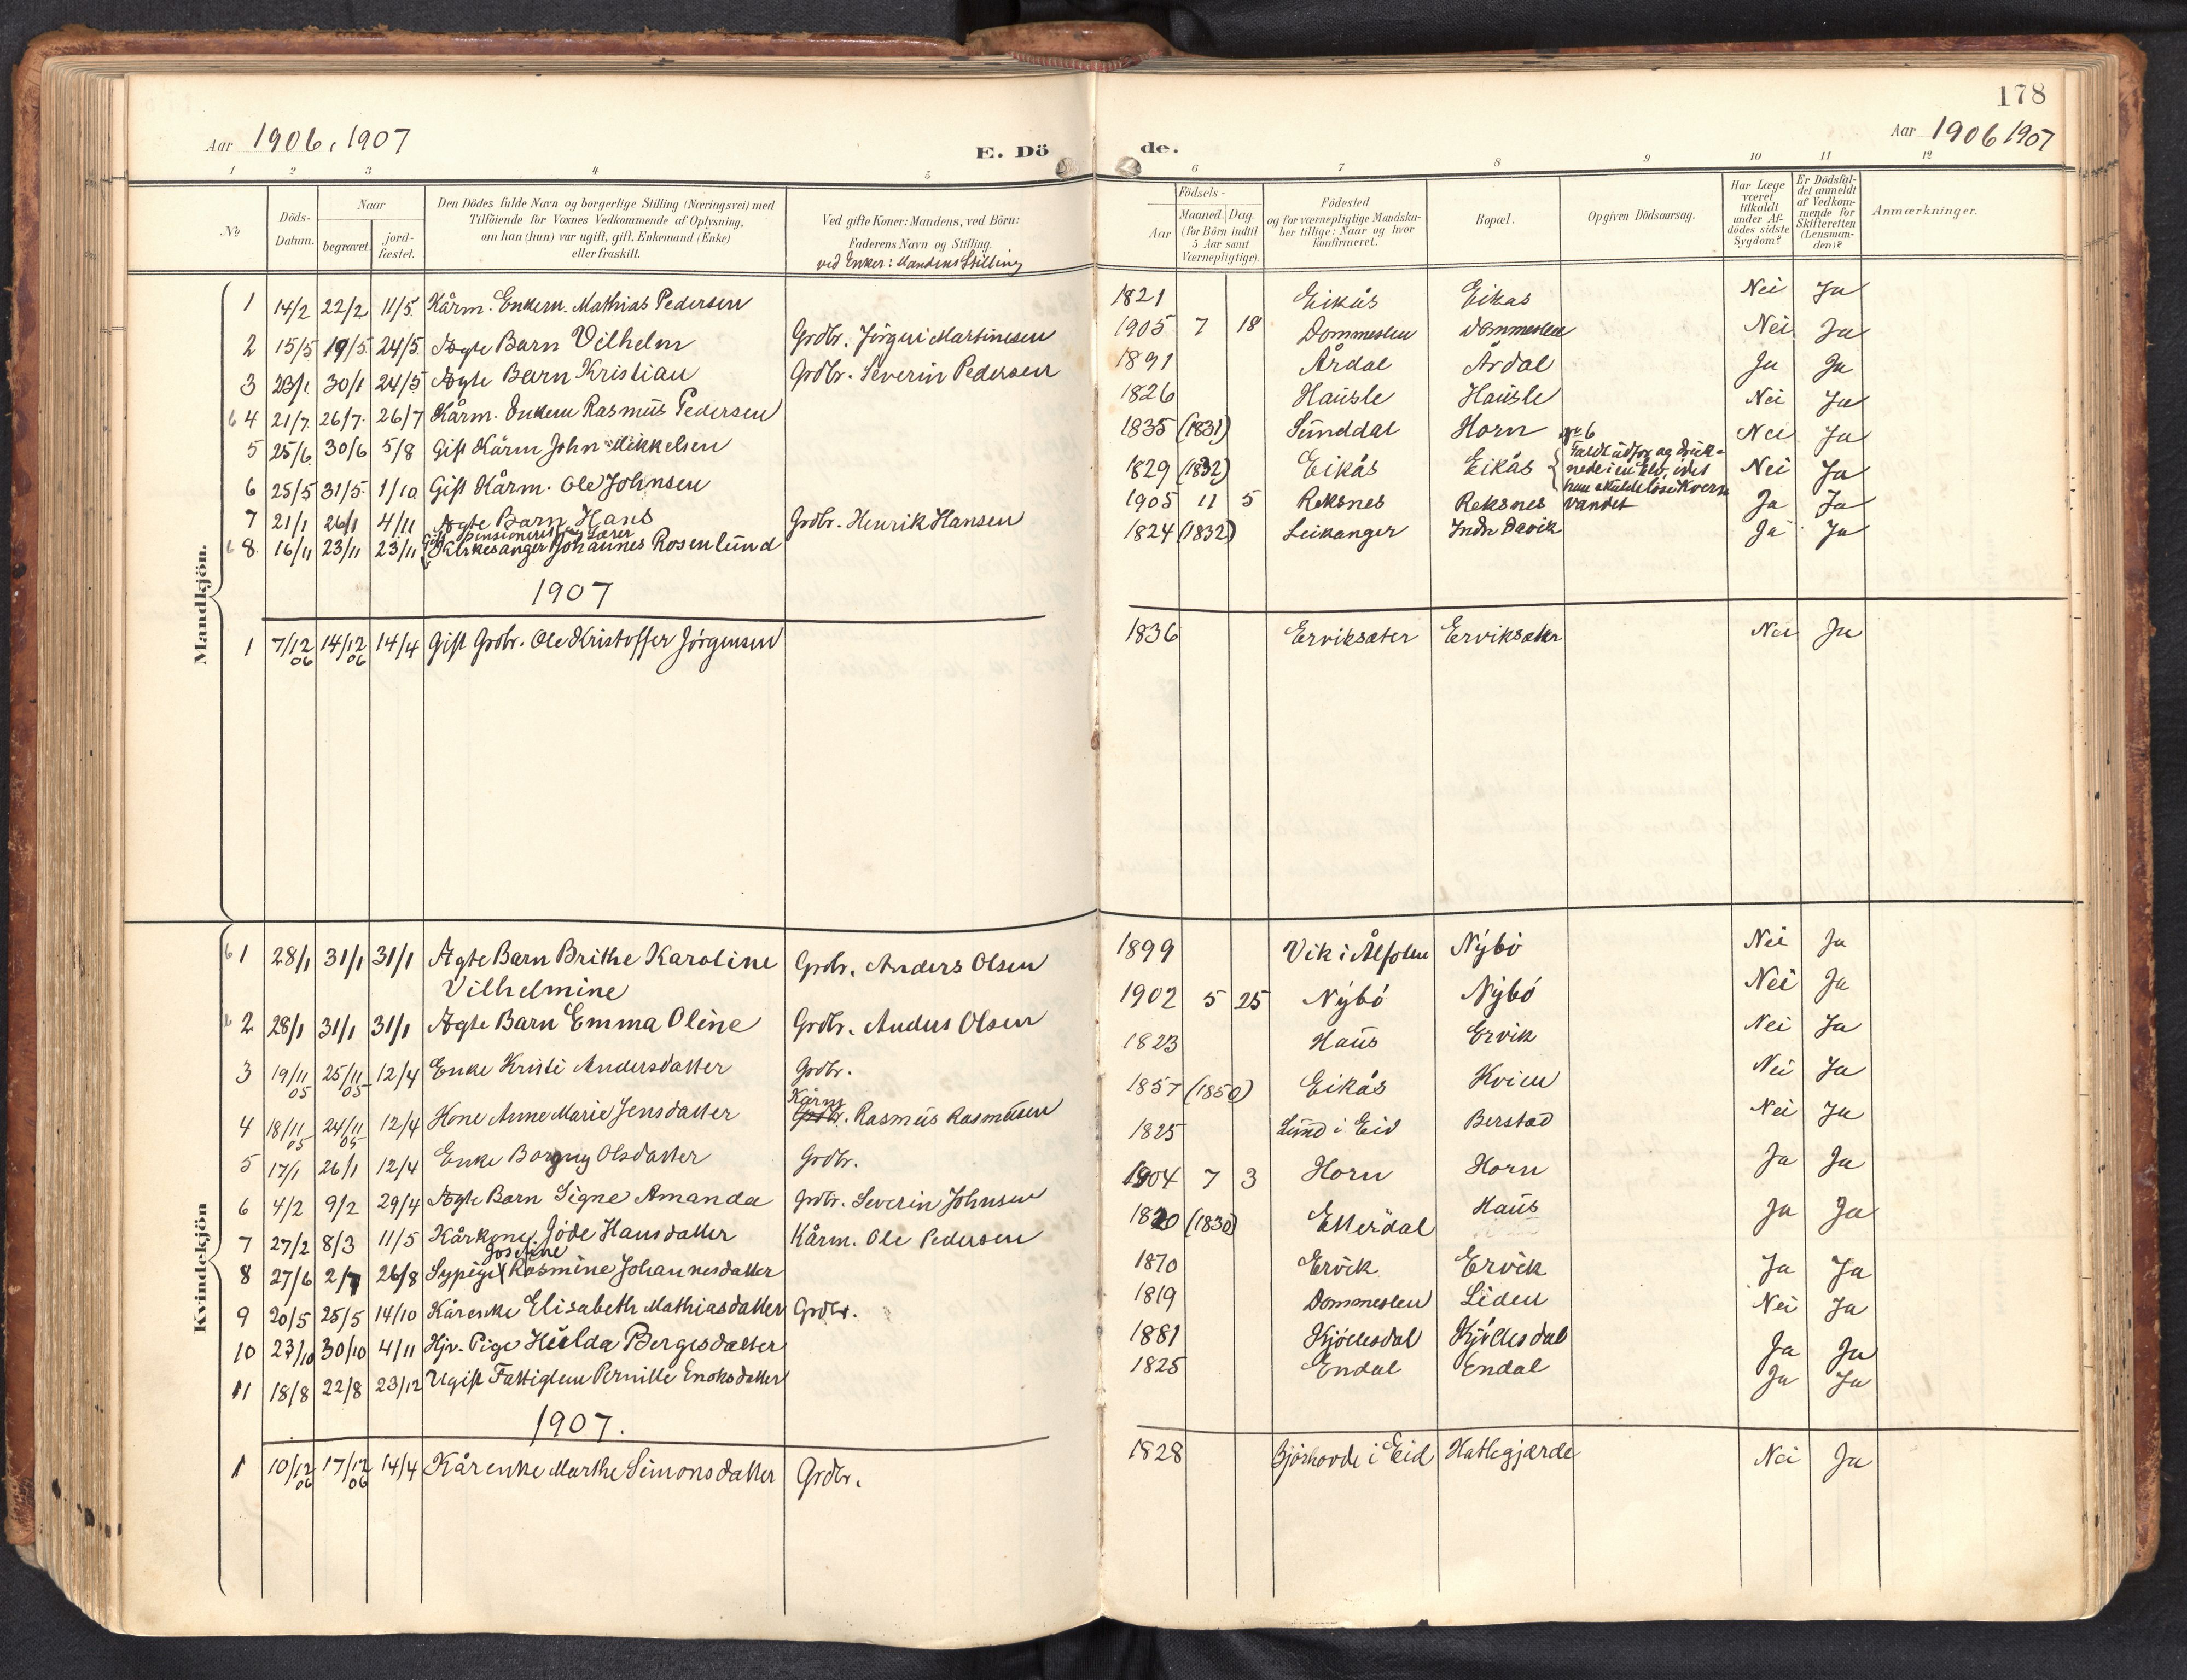 178
Aar 1906, 1907
E. Dö
de.
Aar 1906 1907
1 2 3 4 5
6 7 8 9 10 11 12
No
Döds-Datum.
Naar
begravet.
jord-fæstet.
Den Dödes fulde Navn og borgerlige Stilling (Næringsvei) med
Tilföiende for Voxnes Vedkommende af Oplysning,
om han (hun) var ugift, gift, Enkemand (Enke)
eller fraskilt.
Ved gifte Koner: Mandens, ved Börn:
Faderens Navn og Stilling.
ved Enker: Mandens Stilling
Födsels-
Aar
Maaned. Dag.
(for Börn indtil
5 Aar samt
Værnepligtige).
Födested
og for værnepligtige Mandska-
ber tillige: Naar og hvor
konfirmeret.
Bopæl.
Opgiven Dödsaarsag.
Har Læge
været
tilkaldt
under Af-
dödes sidste
Sygdom?
Er Dödsfal-
det anmeldt
af Vedkom-
mende for
Skifteretten
(Lensman-
den)?
Anmærkninger.
Mandkjön.
1 14/2 22/2 11/5 Kårm. Enkem. Mathias Pedersen 1821 Eikås Eikas Nei Ja
2 15/5 19/5 24/5 Ægte Barn Vilhelm Grdbr. Jörgen Martinesen 1905 7 18 Dommeslen Dommeslen Nei Ja
3 23/1 30/1 24/5 Ægte Barn Kristian Grdbr. Severin Pedersen 1891 Årdal Årdal Ja Ja
6 4 21/7 26/7 26/7 Kårm. Enkem Rasmus Pedersen 1826 Hausle Hausle Nei Ja
5 25/6 30/6 5/8 Gift Kårm John Mikkelsen 1835 (1831) Sunddal Horn Nei Ja
6 25/5 31/5 1/10 Gift Kårm. Ole Johnsen 1829 (1832) Eikås Eikås Nei Ja
No 6
Faldt udfor og druk-
nede i en Elv, idet
han skulde löse Kvern
vandet
7 21/1 26/1 4/11 Ægte Barn Hans Grdbr. Henrik Hansen 1905 11 5 Reksnes Reksnes Ja Ja
Gift pensioneret Lærer
6 8 16/11 23/11 23/11 Kirkesanger Johannes Rosenlund 1824 (1832) Leikanger Indr Davik Ja Ja
1907
1 7/12 06 14/12 06 14/4 Gift Grdbr. Ole Kristoffer Jörgensen 1836 Erviksæter Erviksæter Nei Ja
Kvindekjön
6 1 28/1 31/1 31/1 Ægte Barn Brithe Karoline Grdbr. Anders Olsen 1899 Vik i Ålfoten Nybö Nei Ja
Vilhelmine
6 2 28/1 31/1 31/1 Ægte Barn Emma Oline Grdbr. Anders Olsen 1902 5 25 Nybö Nybö Nei Ja
3 19/11 05 25/11 05 12/4 Enke Kristi Andersdatter Grdbr. 1823 Haus Ervik Nei Ja
Kårm
4 18/11 05 24/11 05 12/4 Kone Anne Marie Jensdatter Grdbr. Rasmus Rasmusen 1857 (1850) Eikås Kvien Nei Ja
5 17/1 26/1 12/4 Enke Borgny Olsdatter Grdbr. 1825 Lund i Eid Berstad Nei Ja
6 4/2 9/2 29/4 Ægte Barn Signe Amanda Grdbr. Severin Johnsen 1904 7 3 Horn Horn Ja Ja
7 27/2 8/3 11/5 Kårkone Jöde Hansdatter Kårm. Ole Pedersen 1820 (1830) Etterdal Haus Ja Ja
Josefine
8 27/6 2/7 26/8 Sypige Rasmine Johannesdatter 1870 Ervik Ervik Ja Ja
9 20/5 25/5 14/10 Kårenke Elisabeth Mathiasdatter Grdbr. 1819 Dommeslen Liden Nei Ja
10 23/10 30/10 4/11 Hjv. Pige Hulda Bergesdatter 1881 Kjöllesdal Kjöllesdal Ja Ja
11 18/8 22/8 23/12 Ugift Fattiglem Pernille Enoksdatter 1825 Endal Endal Ja Ja
1907.
1 10/12 06 17/12 06 14/4 Kårenke Marthe Simonsdatter Grdbr. 1828 Bjórhovde i Eid Hatlegjærde Nei Ja